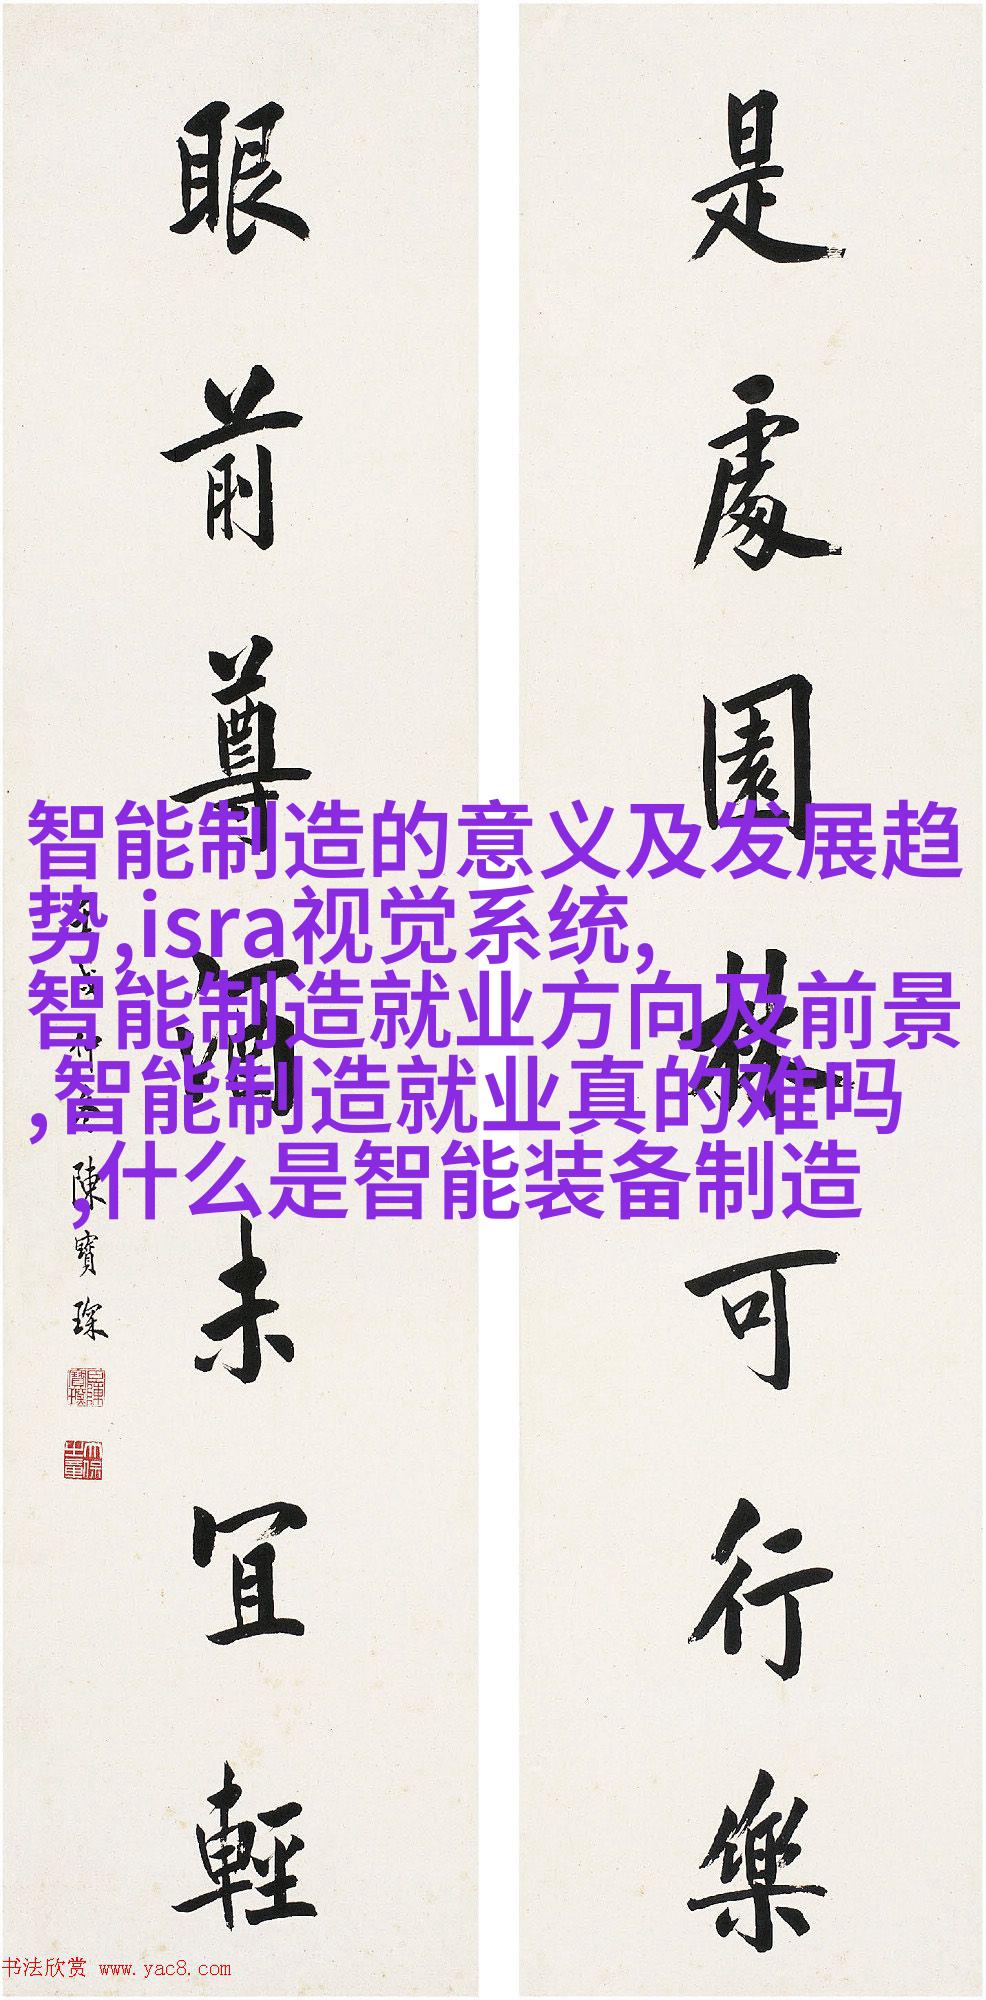 是處園林可行樂
眼前尊酒未宜輕
陳寶琛
智能制造的意义及发展趋
势,isra视觉系统,
智能制造就业方向及前景
,智能制造就业真的难吗
,什么是智能装备制造
书法欣赏 www.yac8.com